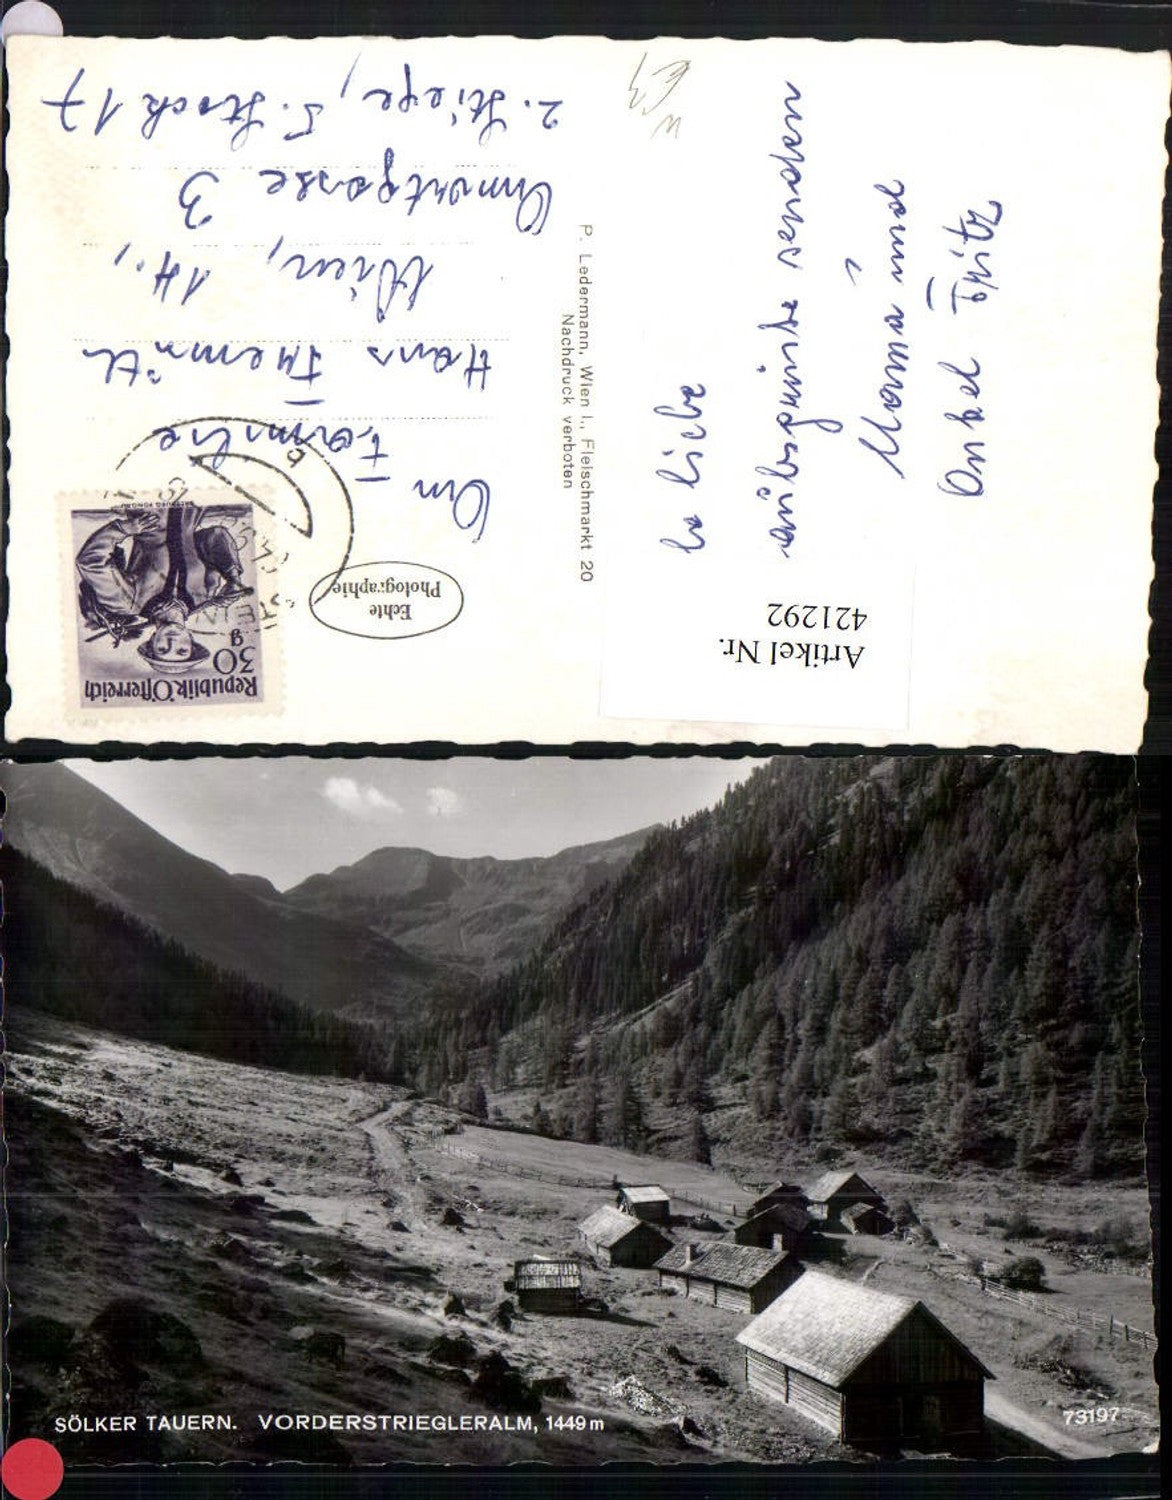 Republik Österreich
30
g
Echte
Photographie
An
Familie
Hans
Wien, 14.,
3
2. Stiege, 5. Stock 17
P. Ledermann, Wien I., Fleischmarkt 20
Nachdruck verboten
So liebe
senden
Mama und
Onkel Fritz
Artikel Nr.
421292
SÖLKER TAUERN. VORDERSTRIEGLERALM, 1449 m
73197